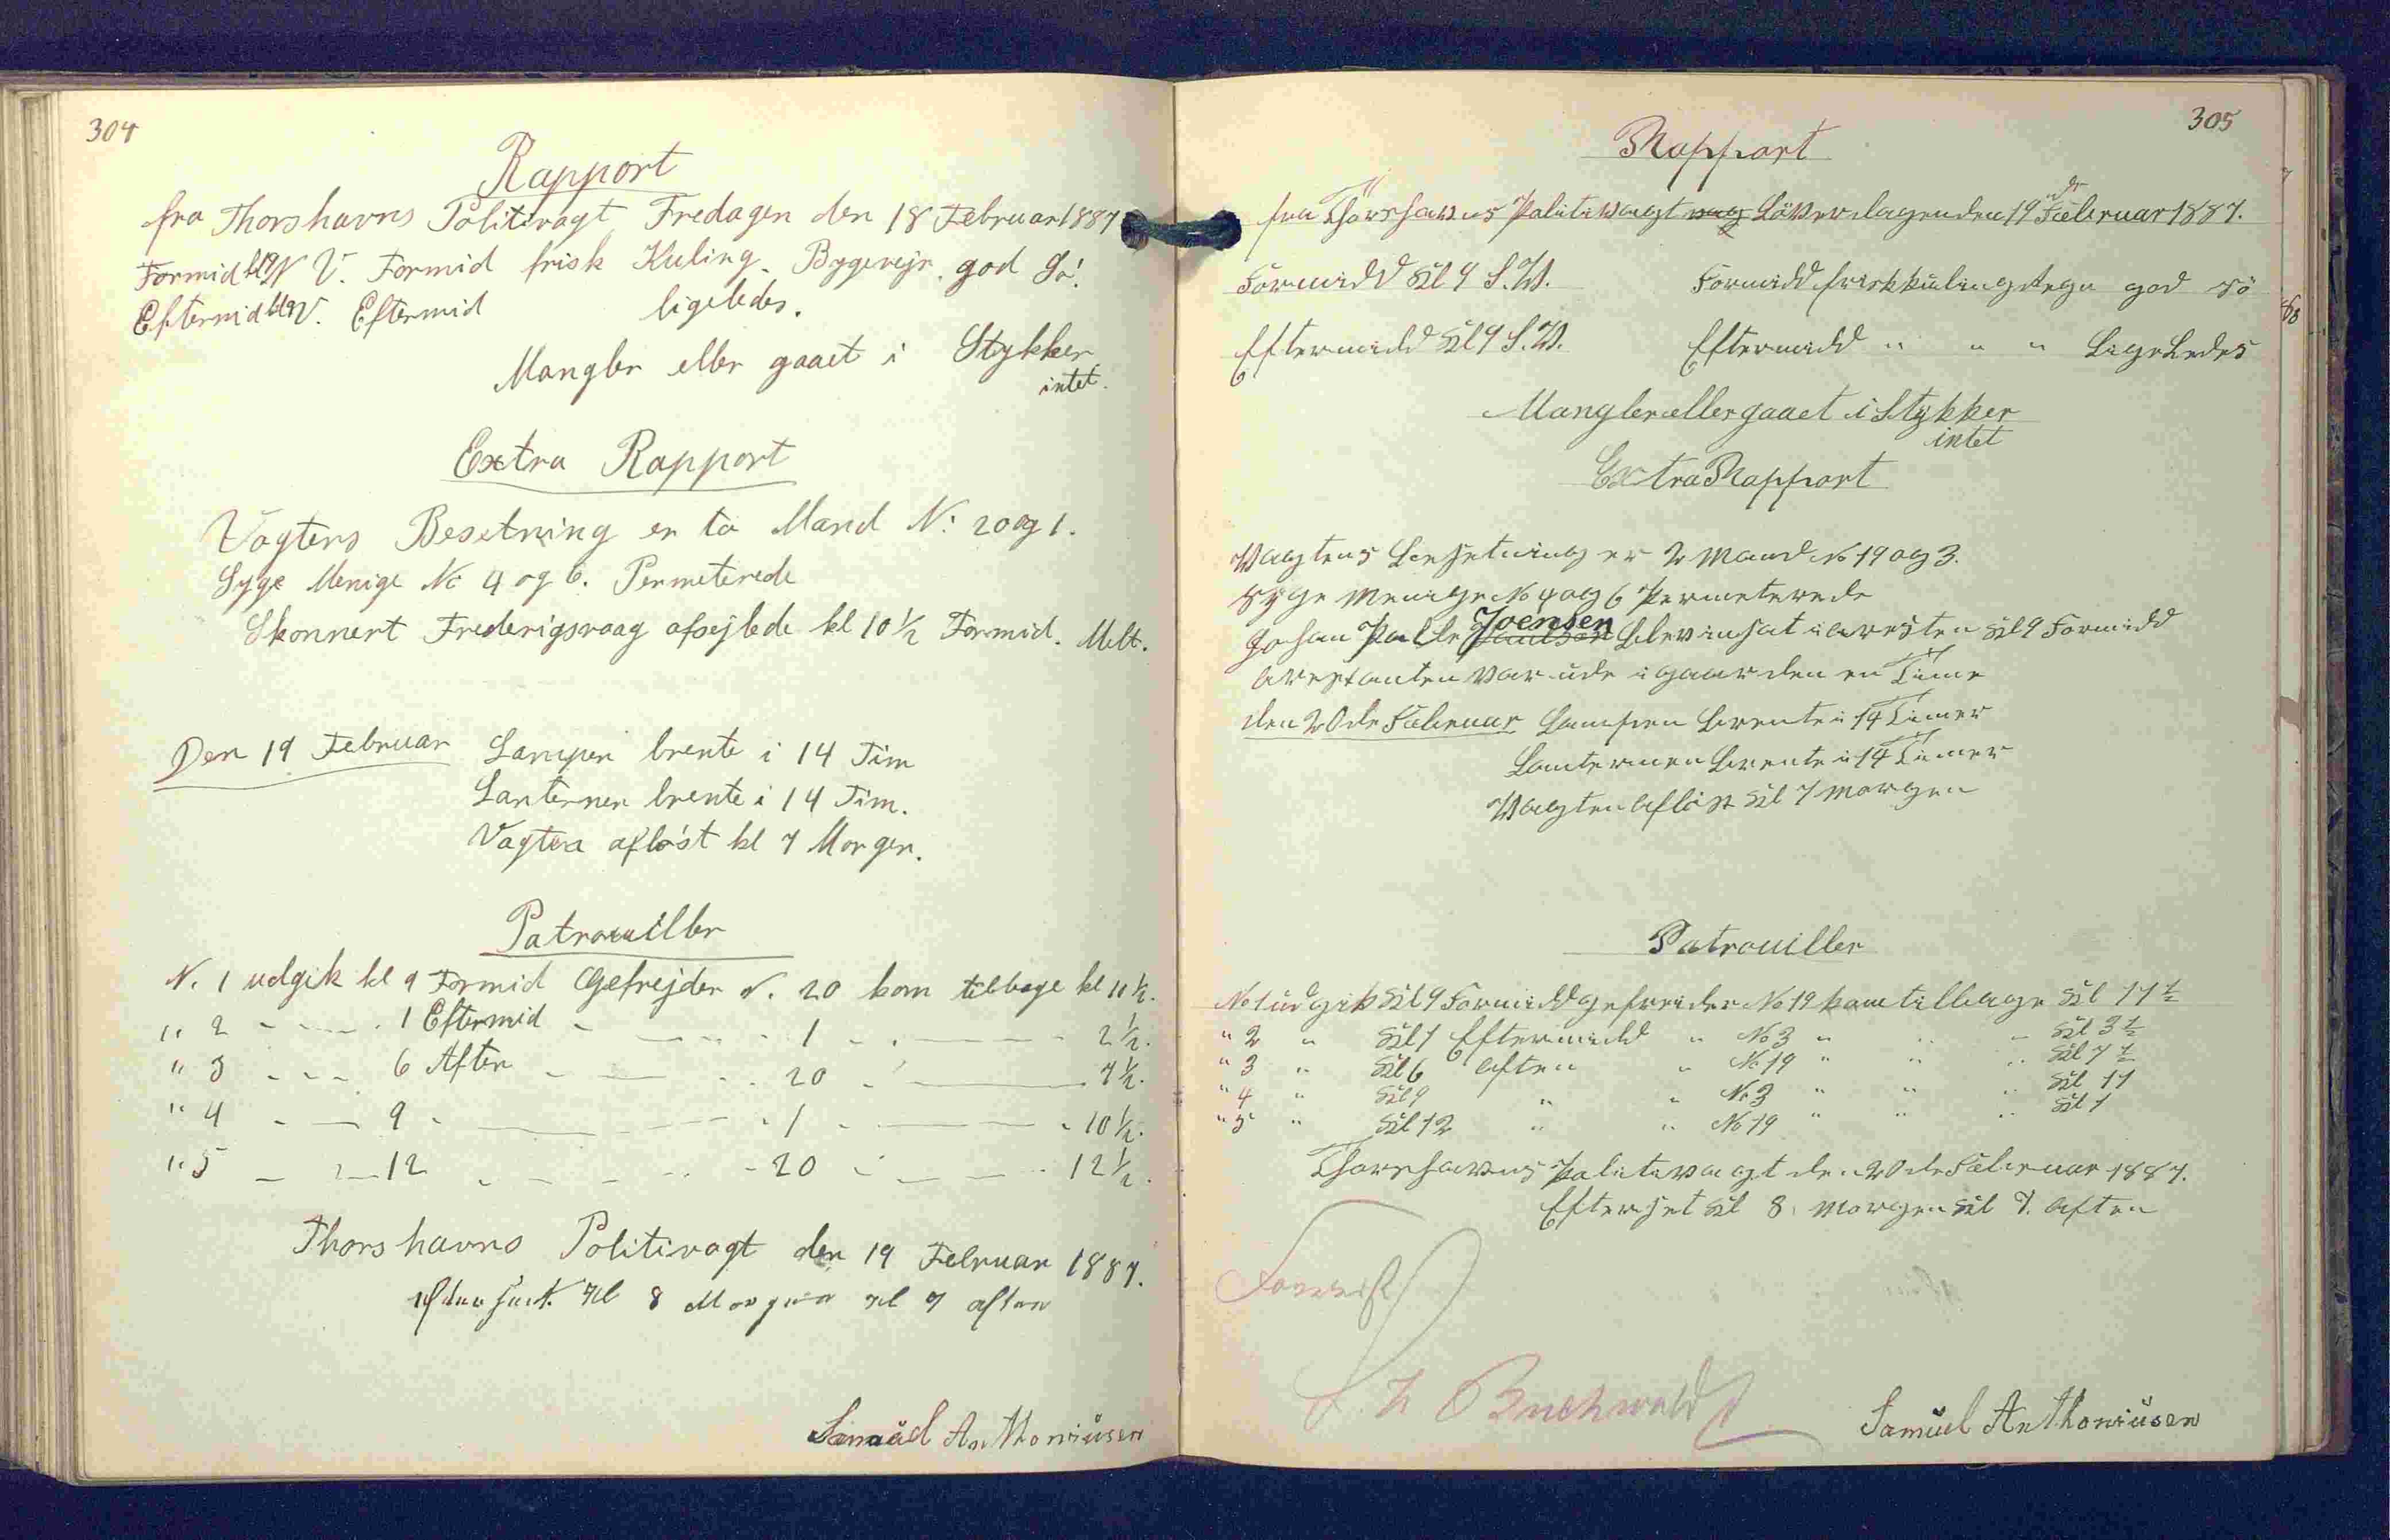 304
Rapport
fra Thorshavns Politivagt Fredagen den 18 Februar 1887
Formid kl 9 N V. Formid frisk Kuling. Bygevejr. god Sö!
Eftermid kl 9 V. Eftermid ligeledes.
Mangler eller gaaet i Stykker
intet.
Extra Rapport
Vagtens Besetning er to Mand No 20 og 1.
Syge Menige No 4 og 6. Permeterede
Skonnert Frederigsvaag afsejlede kl 10½ Formid. Melt.
Den 19 Februar Lampen brente i 14 Tim
Lanternen brente i 14 Tim.
Vagten afløst kl 7 Morgen.
Patrouiller
N. 1 udgik kl 9 Formid Gefrejder N. 20 kom tilbage kl 11½.
" 2 - - - 1 Eftermid - - - 1 - - - 2½.
" 3 - - - 6 Aften - - - 20 - - - 7½.
" 4 - - 9 - - - 1 - - - 10½.
" 5 - - 12 - - - 20 - - - 12½.
Thorshavns Politivagt den 19 Februar 1887.
efterset Kl 8 Morgen Kl 7 aften
Samuel Anthoniusen
305
Rapport
fra Thorshavns Politivagt Löverdagen den 19nde Februar 1887.
Formidd Kl 9 S.V. Formidd frisk kuling Regn god sö
Eftermidd Kl 9 S.V. Eftermidd " " " Ligeledes
Mangler eller gaaet i Stykker
intet
Extra Rapport
Vagtens Besetning er 2 Mand No 19 og 3.
Syge Menige No 4 og 6 Permeterede
Johan Palle Joensen blev insat i aresten Kl 9 Formidd
Arestanten var ude i gaarden en Time
den 20de Februar Lampen Brente i 14 Timer
Lanternen Brente i 14 Timer
Vagten Afløst Kl 7 Morgen
Patrouiller
No 1 udgik Kl 9 Formidd gefreider No 19 kom tilbage Kl 11½
" 2 " Kl 1 Eftermidd " No 3 " " " Kl 3½
" 3 " Kl 6 Aften " No 19 " " " Kl 7½
" 4 " Kl 9 " " No 3 " " " Kl 11
" 5 " Kl 12 " " No 19 " " " Kl 1
Thorshavns Politivagt den 20de Februar 1887.
Efterset Kl 8 Morgen Kl 7 Aften
Buchwald
Samuel Anthoniusen